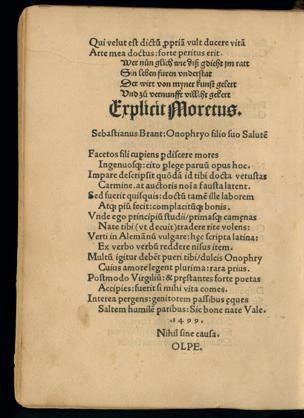 Qui velut est dictũ ꝓpriā vult ducere vitā
Arte mea doctus: forte peritus erit.
Wer nũn glich wie diß gdicht jm ratt
Sin leben fůren vnderstat
Der wirt von myner kunst gelert
Vnd zů vernunfft villiht gekert
Explicit Moretus.
Sebastianus Brant: Onophryo filio suo Salutē
Facetos fili cupiens ꝑdiscere mores
Ingenuosqꝫ: cito plege paruũ opus hoc.
Impare descripsit quodā id tibi docta vetustas
Carmine. at auctoris noīa fausta latent.
Sed fuerit quisquis: doctũ tamē ille laborem
Atqꝫ piũ fecit: complacitũqꝫ bonis.
Vnde ego principiũ studii/primasqꝫ camęnas
Nate tibi (vt decuit) tradere rite volens:
Verti in Alemānũ vulgare: hęc scripta latina:
Ex verbo verbũ reddere nisus item.
Multũ igitur debēt pueri tibi/dulcis Onophry
Cuius amore legent plurima: rara prius.
Postmodo Virgiliũ: & prestantes forte poetas
Accipies: fuerit si mihi vita comes.
Interea pergens: genitorem passibus ęques
Saltem humilē paribus: Sic bone nate Vale.
.1499.
Nihil sine causa.
OLPE.